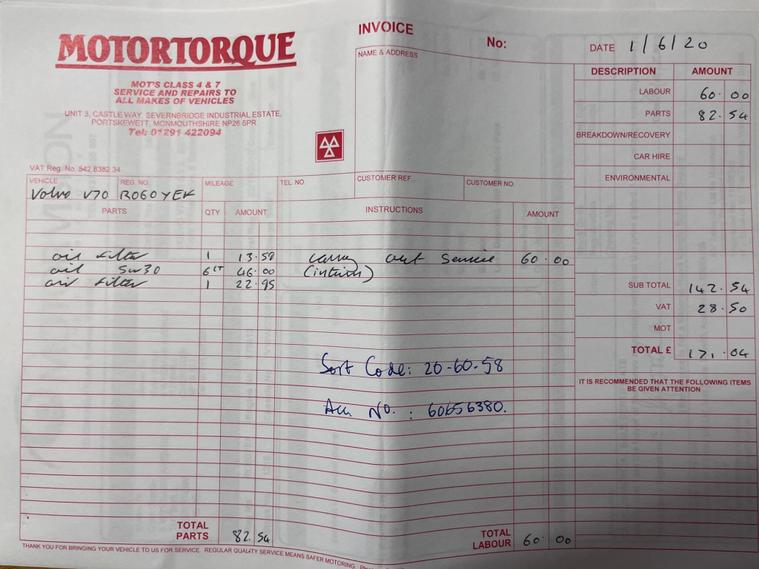 MOTORTORQUE
MOT'S CLASS 4 & 7
SERVICE AND REPAIRS TO
ALL MAKES OF VEHICLES
UNIT 3, CASTLE WAY, SEVERNBRIDGE INDUSTRIAL ESTATE,
PORTSKEWETT, MONMOUTHSHIRE NP26 5PR
Tel: 01291 422094
VAT Reg. No. 542 8382 34
INVOICE
No:
NAME & ADDRESS
DATE 1/6/20
DESCRIPTION AMOUNT
LABOUR 60.00
PARTS 82.54
BREAKDOWN/RECOVERY
CAR HIRE
ENVIRONMENTAL
SUB TOTAL 142.54
VAT 28.50
MOT
TOTAL £ 171.04
IT IS RECOMMENDED THAT THE FOLLOWING ITEMS
BE GIVEN ATTENTION
VEHICLE REG. NO. MILEAGE TEL NO CUSTOMER REF. CUSTOMER NO.
Volvo V70 RO60YEK
PARTS QTY AMOUNT INSTRUCTIONS AMOUNT
oil filter 1 13.59 carry out service 60.00
oil 5w30 6LT 46.00 (interim)
air filter 1 22.95
Sort Code: 20-60-58
Acc No. : 60656380.
TOTAL PARTS 82.54 TOTAL LABOUR 60.00
THANK YOU FOR BRINGING YOUR VEHICLE TO US FOR SERVICE. REGULAR QUALITY SERVICE MEANS SAFER MOTORING.